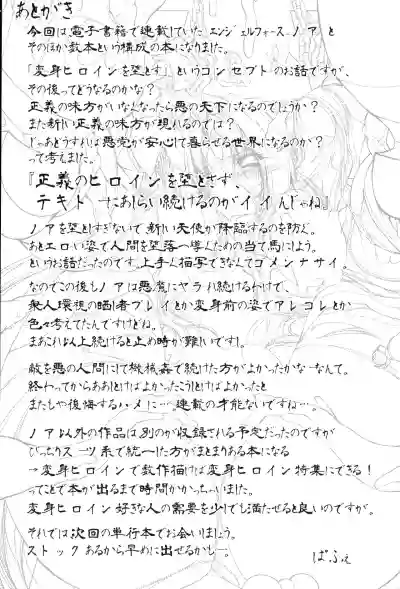 あとがき
今回は電子書籍で連載していた エンジェルフォース ノア と
そのほか数本という構成の本になりました。
「変身ヒロインを堕とす」というコンセプトのお話ですが、
その後ってどうなるのかな?
正義の味方がいなくなったら悪の天下になるのでしょうか?
また新しい正義の味方が現れるのでは?
じゃあどうすれば悪党が安心して暮らせる世界になるのか?
って考えました。
『正義のヒロインを堕とさず、
テキトーにあしらい続けるのがイイんじゃね』
ノアを堕としすぎないで新しい天使が降臨するのを防ぐ。
あとエロい姿で人間を堕落へ導くための当て馬にしよう。
というお話だったのです。上手く描写できなくてゴメンナサイ。
なのでこの後もノアは悪魔にヤラれ続けるわけで、
衆人環視の晒し者プレイとか変身前の姿でアレコレとか
色々考えてたんですけどね。
まあこれ以上続けると止め時が難しいですし。
敵を悪の人間にして機械姦で続けた方がよかったかなーなんて。
終わってからああしとけばよかったこうしとけばよかったと
またしゃ後悔するハメに…連載の才能ないですね…。
ノア以外の作品は別のが収録される予定だったのですが
ぴっちりスーツ系で統一した方がまとまりある本になる
→変身ヒロインで数作描けば変身ヒロイン特集にできる!
ってことで本が出るまで時間かかっちゃいました。
変身ヒロイン好きな人の需要を少しでも満たせると良いのですが。
それでは次回の単行本でお会いしましょう。
ストックあるから早めに出せるかしー。
ぱふぇ